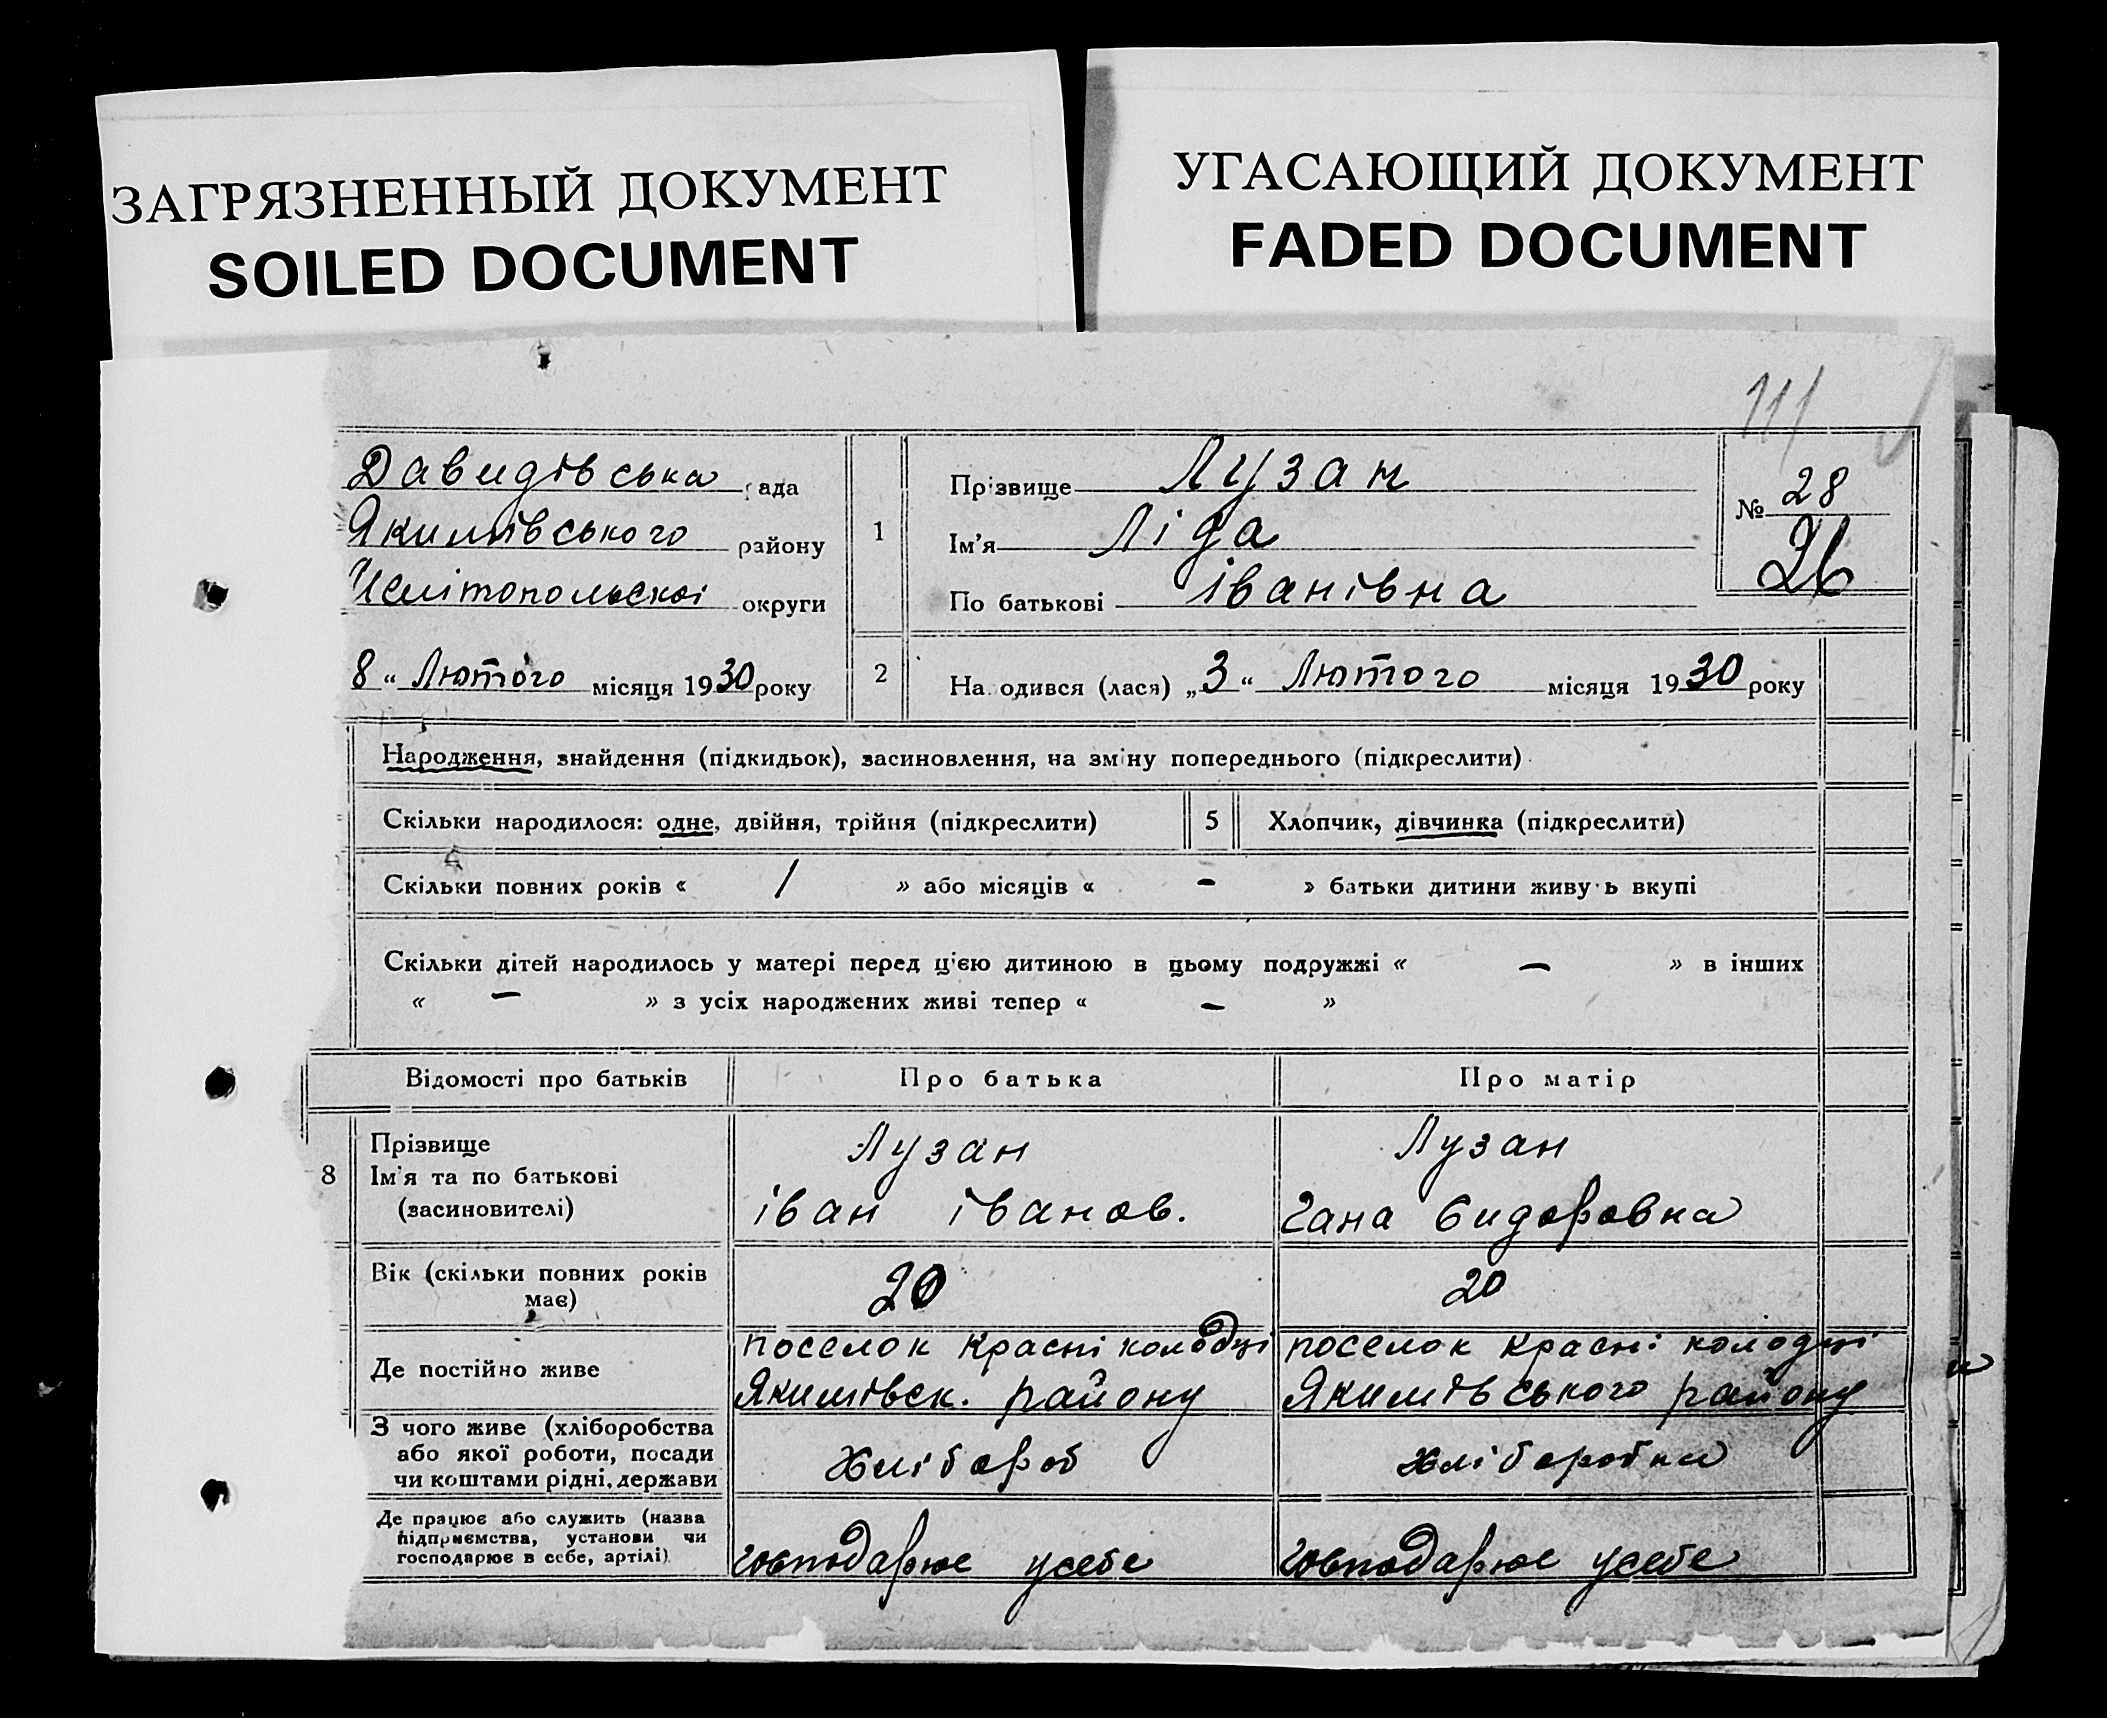 ЗАГРЯЗНЕННЫЙ ДОКУМЕНТ
SOILED DOCUMENT
УГАСАЮЩИЙ ДОКУМЕНТ
FADED DOCUMENT
111
Давидівська рада
Якимівського району
Мелітопольскої округи
8 “ Лютого місяця 1930 року
1
Прізвище Лузан
Ім’я Ліда
По батькові Іванівна
№ 28
26
2
На одився (лася) „3“ Лютого місяця 1930 року
Народження, знайдення (підкидьок), засиновлення, на зміну попереднього (підкреслити)
Скільки народилося: одне, двійня, трійня (підкреслити)
5
Хлопчик, дівчинка (підкреслити)
Скільки повних років « 1 » або місяців « - » батьки дитини живу ь вкупі
Скільки дітей народилось у матері перед цією дитиною в цьому подружжі « — » в інших
« — » з усіх народжених живі тепер « — »
Відомості про батьків
Про батька
Про матір
8
Прізвище
Ім’я та по батькові
(засиновителі)
Лузан
іван іванов.
Лузан
Гана Сидоровна
Вік (скільки повних років
має)
20
20
Де постійно живе
поселок Красні колодці
Якимівск. району
поселок Красні колодці
Якимівського району
З чого живе (хліборобства
або якої роботи, посади
чи коштами рідні, держави
Хлібороб
хліборобка
Де працює або служить (назва
підприємства, установи чи
господарює в себе, артілі)
господарює усебе
господарює усебе